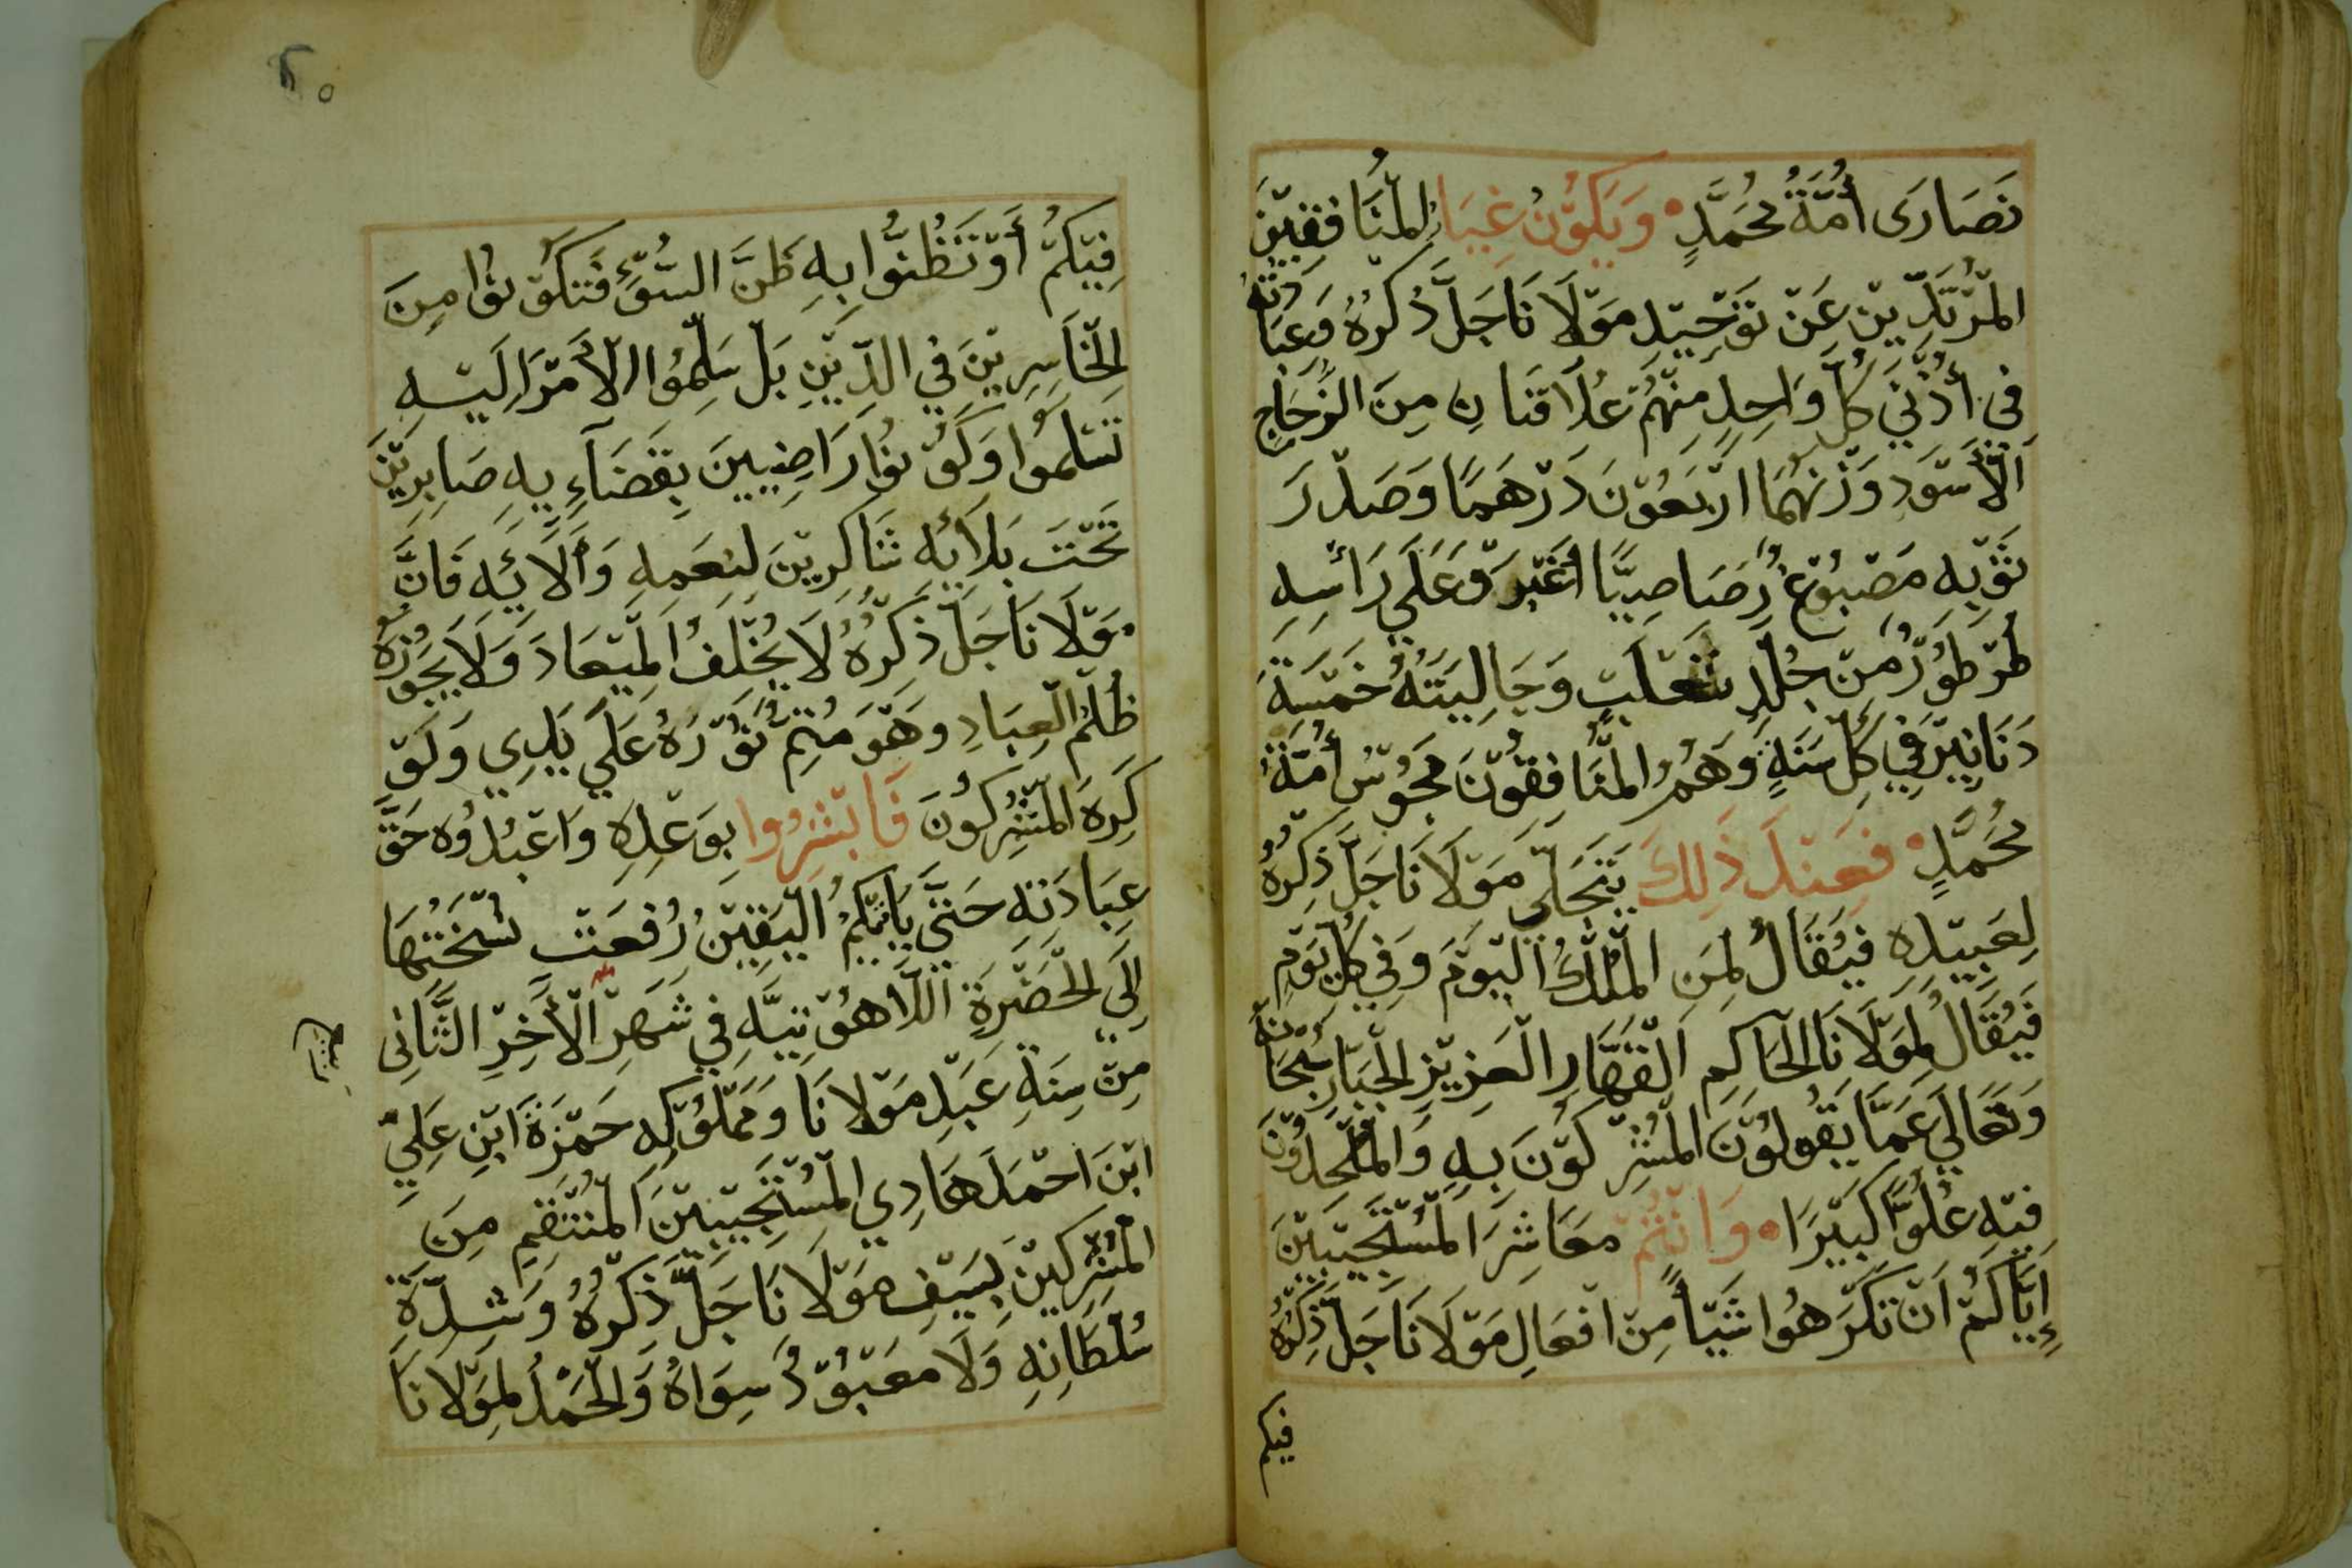 نَصَارَى أُمَّةُ مُحَمَّدٍ وَيَكُوْنُ غِيَارُ الْمُنَافِقِيْنَ
الْمُرْتَدِّيْنَ عَنْ تَوْحِيْدِ مَوْلَانَا جَلَّ ذِكْرُهُ وَعِبَادَتُهُ
فِي أُذُنَيْ كُلِّ وَاحِدٍ مِنْهُمْ عُلَاقَتَانِ مِنَ الزُّجَاجِ
اَلْأَسْوَدِ وَزْنُهُمَا اَرْبَعُوْنَ دَرْهَمًا وَصَدْرَ
ثَوْبِهِ مَصْبُوْغٌ رُصَاصِيًّا أَغْبَرَ وَعَلَي رَأْسِهِ
طُرْطُوْرٌ مِنْ جُلْدِ ثَعْلَبٍ وَجَالِيَتَهُ خَمْسَةَ
دَنَانِيْرَ فِي كُلِّ سَنَةٍ وَهُمُ الْمُنَافِقُوْنَ مَجُوْسُ أُمَّةُ
مُحَمَّدٍ فَعِنْدَ ذَلِكَ يَتَجَلَّي مَوْلَانَا جَلَّ ذِكْرُهُ
لِعَبِيْدِهِ فَيُقَالُ لِمَنِ الْمُلْكُ الْيَوْمَ وَفِي كُلِّ يَوْمٍ
فَيُقَالُ لِمَوْلَانَا الْحَاكِمِ اَلْقَهَّارِ الْعَزِيْزِ الْجَبَّارِ سُبْحَانَهُ
وَتَعَالَي عَمَّا يَقُولُوْنَ الْمُشْرِكُوْنَ بِهِ وَالْمُلْحِدُوْنَ
فِيْهِ عُلُوًّا كَبِيْرَا وَاَنْتُمْ مَعَاشِرَ الْمُسْتَجِيْبِيْنَ
إِيَّاكُمْ اَنْ تَكْرَهُوا شَيْأً مِنْ اَفْعَالِ مَوْلَانَا جَلَّ ذِكْرُهُ
فيكم
٢٥
فِيْكُمْ أَوْ تَظُنُّوا بِهِ ظَنَّ السَّوْءِ فَتَكُوْنُوا مِنَ
الْخَاسِرِيْنَ فِي الدِّيْنِ بَلْ سَلِّمُوا الْأَمْرَ اِلَيْهِ
تَسْلَمُوا وَكُوْنُوا رَاضِيِيْنَ بِقَضَآءِ يِهِ صَابِرِيْنَ
تَحْتَ بَلَآيِهِ شَاكِرِيْنَ لِنِعَمِهِ وَأَلَايِهِ فَاِنَّ
مَوْلَانَا جَلَّ ذِكْرُهُ لَا يُخْلِفُ الْمِيْعَادَ وَلَا يَجُوْزُهُ
ظُلْمُ الْعِبَادِ وَهَوَ مُتِمُّ نُوْرَهُ عَلَي يَدِي وَلَوْ
كَرِهَ الْمُشْرِكُوْنَ فَابْشِرُوا بِوَعْدِهِ وَاعْبُدُوْهُ حَقَّ
عِبَادَتِهِ حَتَّي يَاْتِيْكُمُ الْيَقِيْنُ رُفِعَتْ نُسْخَتُهَا
اِلَي الْحَضْرَةِ اللَّاهُوْتِيَّهِ فِي شَهْرِ الْأَخِرِ الثَّانِي
مِنْ سِنَةِ عَبْدِ مَوْلَانَا وَمَمْلُوْكِهِ حَمْزَةَ ابْنِ عَلِيِّ
ابْنَ احْمَدَ هَادِي الْمُسْتَجِيْبِيْنَ الْمُنْتَقِمِ مِنَ
الْمُشْرِكِيْنَ بِسَيْفِ مَوْلَانَا جَلَّ ذِكْرُهُ وَشِدَّةِ
سُلْطَانِهِ وَلَا مَعْبُوْدٌ سِوَاهُ وَالْحَمْدُ لِمَوْلَانَا